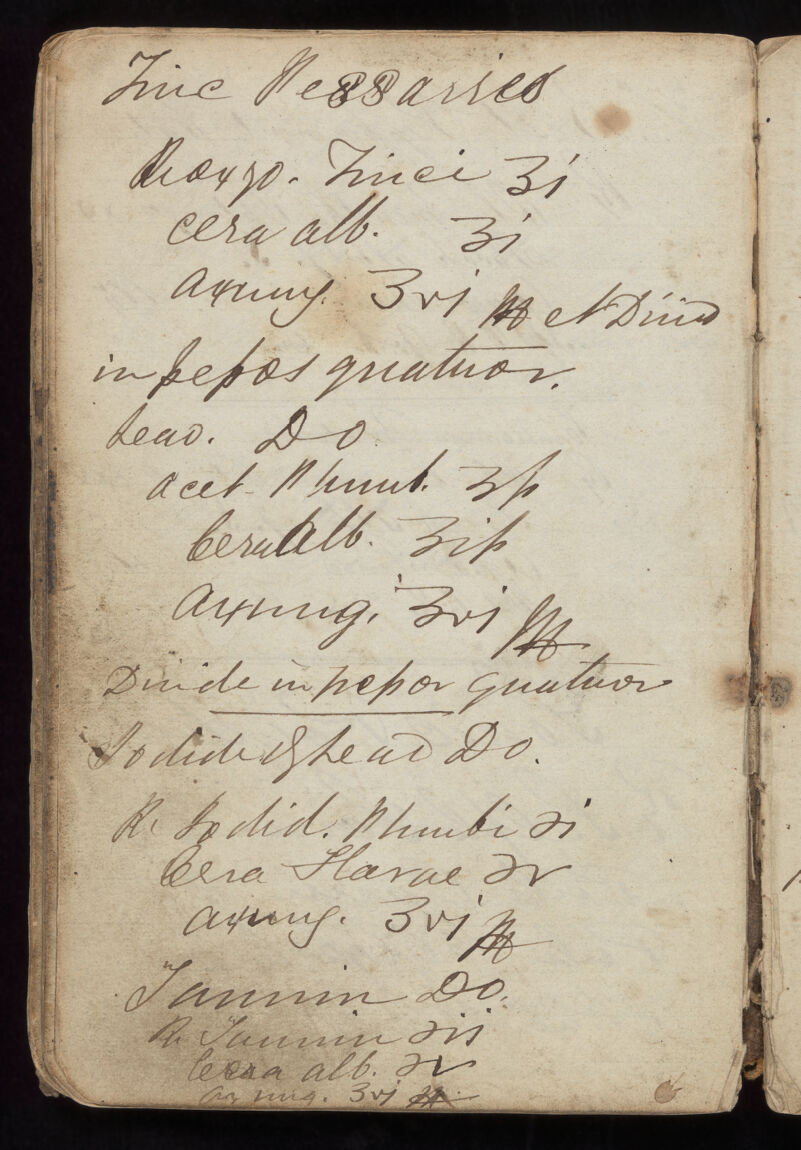 Zinc Pessaries
℞ oxyd. Zinci ʒi
cera alb. ʒi
axung. ʒvi M et Divid
in pessos quatuor.
Lead. Do
acet. Plumb. ʒß
Cera Alb. ʒiß
axung. ʒvi M
Divide in pessos quatuor
Iodide of Lead Do.
℞ Iodid. Plumbi ℈i
Cera Flavae ℈v
axung. ʒvi M
Tannin Do.
℞ Tannin ℈ii
Cera alb. ℈v
axung. ʒvi M